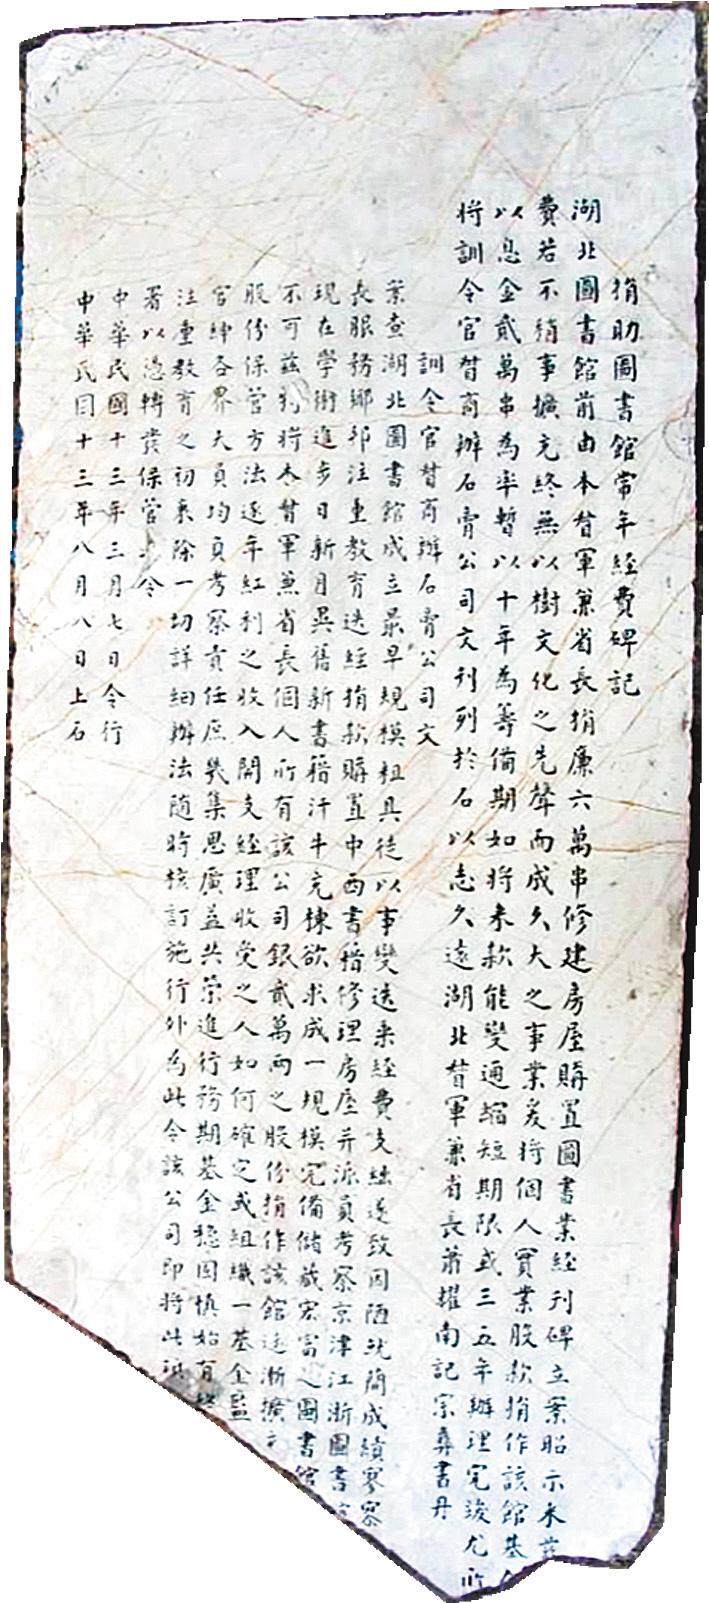 捐助圖書館常年經費碑記
湖北圖書館前由本督軍兼省長捐廉六萬串修建房屋購置圖書業經刊碑立案昭示來茲
費若不稍事擴充終無以樹文化之先聲而成久大之事業爰將個人實業股款捐作該館基金
以息金貳萬串為率暫以十年為籌備期如將來款能變通縮短期限或三五年辦理完竣尤所
將訓令官督商辦石膏公司文刊列於石以志久遠湖北督軍兼省長蕭耀南記宗彝書丹
訓令官督商辦石膏公司文
案查湖北圖書館成立最早規模粗具徒以事變迭乘經費支絀遂致因陋就簡成績寥寥
長服務鄉邦注重教育迭經捐款購置中西書籍修理房屋并派員考察京津江浙圖書館
現在學術進步日新月異舊新書籍汗牛充棟欲求成一規模完備儲藏宏富之圖書館
不可茲特將本督軍兼省長個人所有該公司銀貳萬兩之股份捐作該館逐漸擴充
股份保管方法逐年紅利之收入開支經理收受之人如何確定或組織一基金監
官紳各界大員均負考察責任庶幾集思廣益共策進行務期基金穩固慎始有終
注重教育之初衷除一切詳細辦法隨時核訂施行外為此令該公司即將此項
署以憑轉發保管此令
中華民國十三年三月七日令行
中華民国十三年八月八日上石